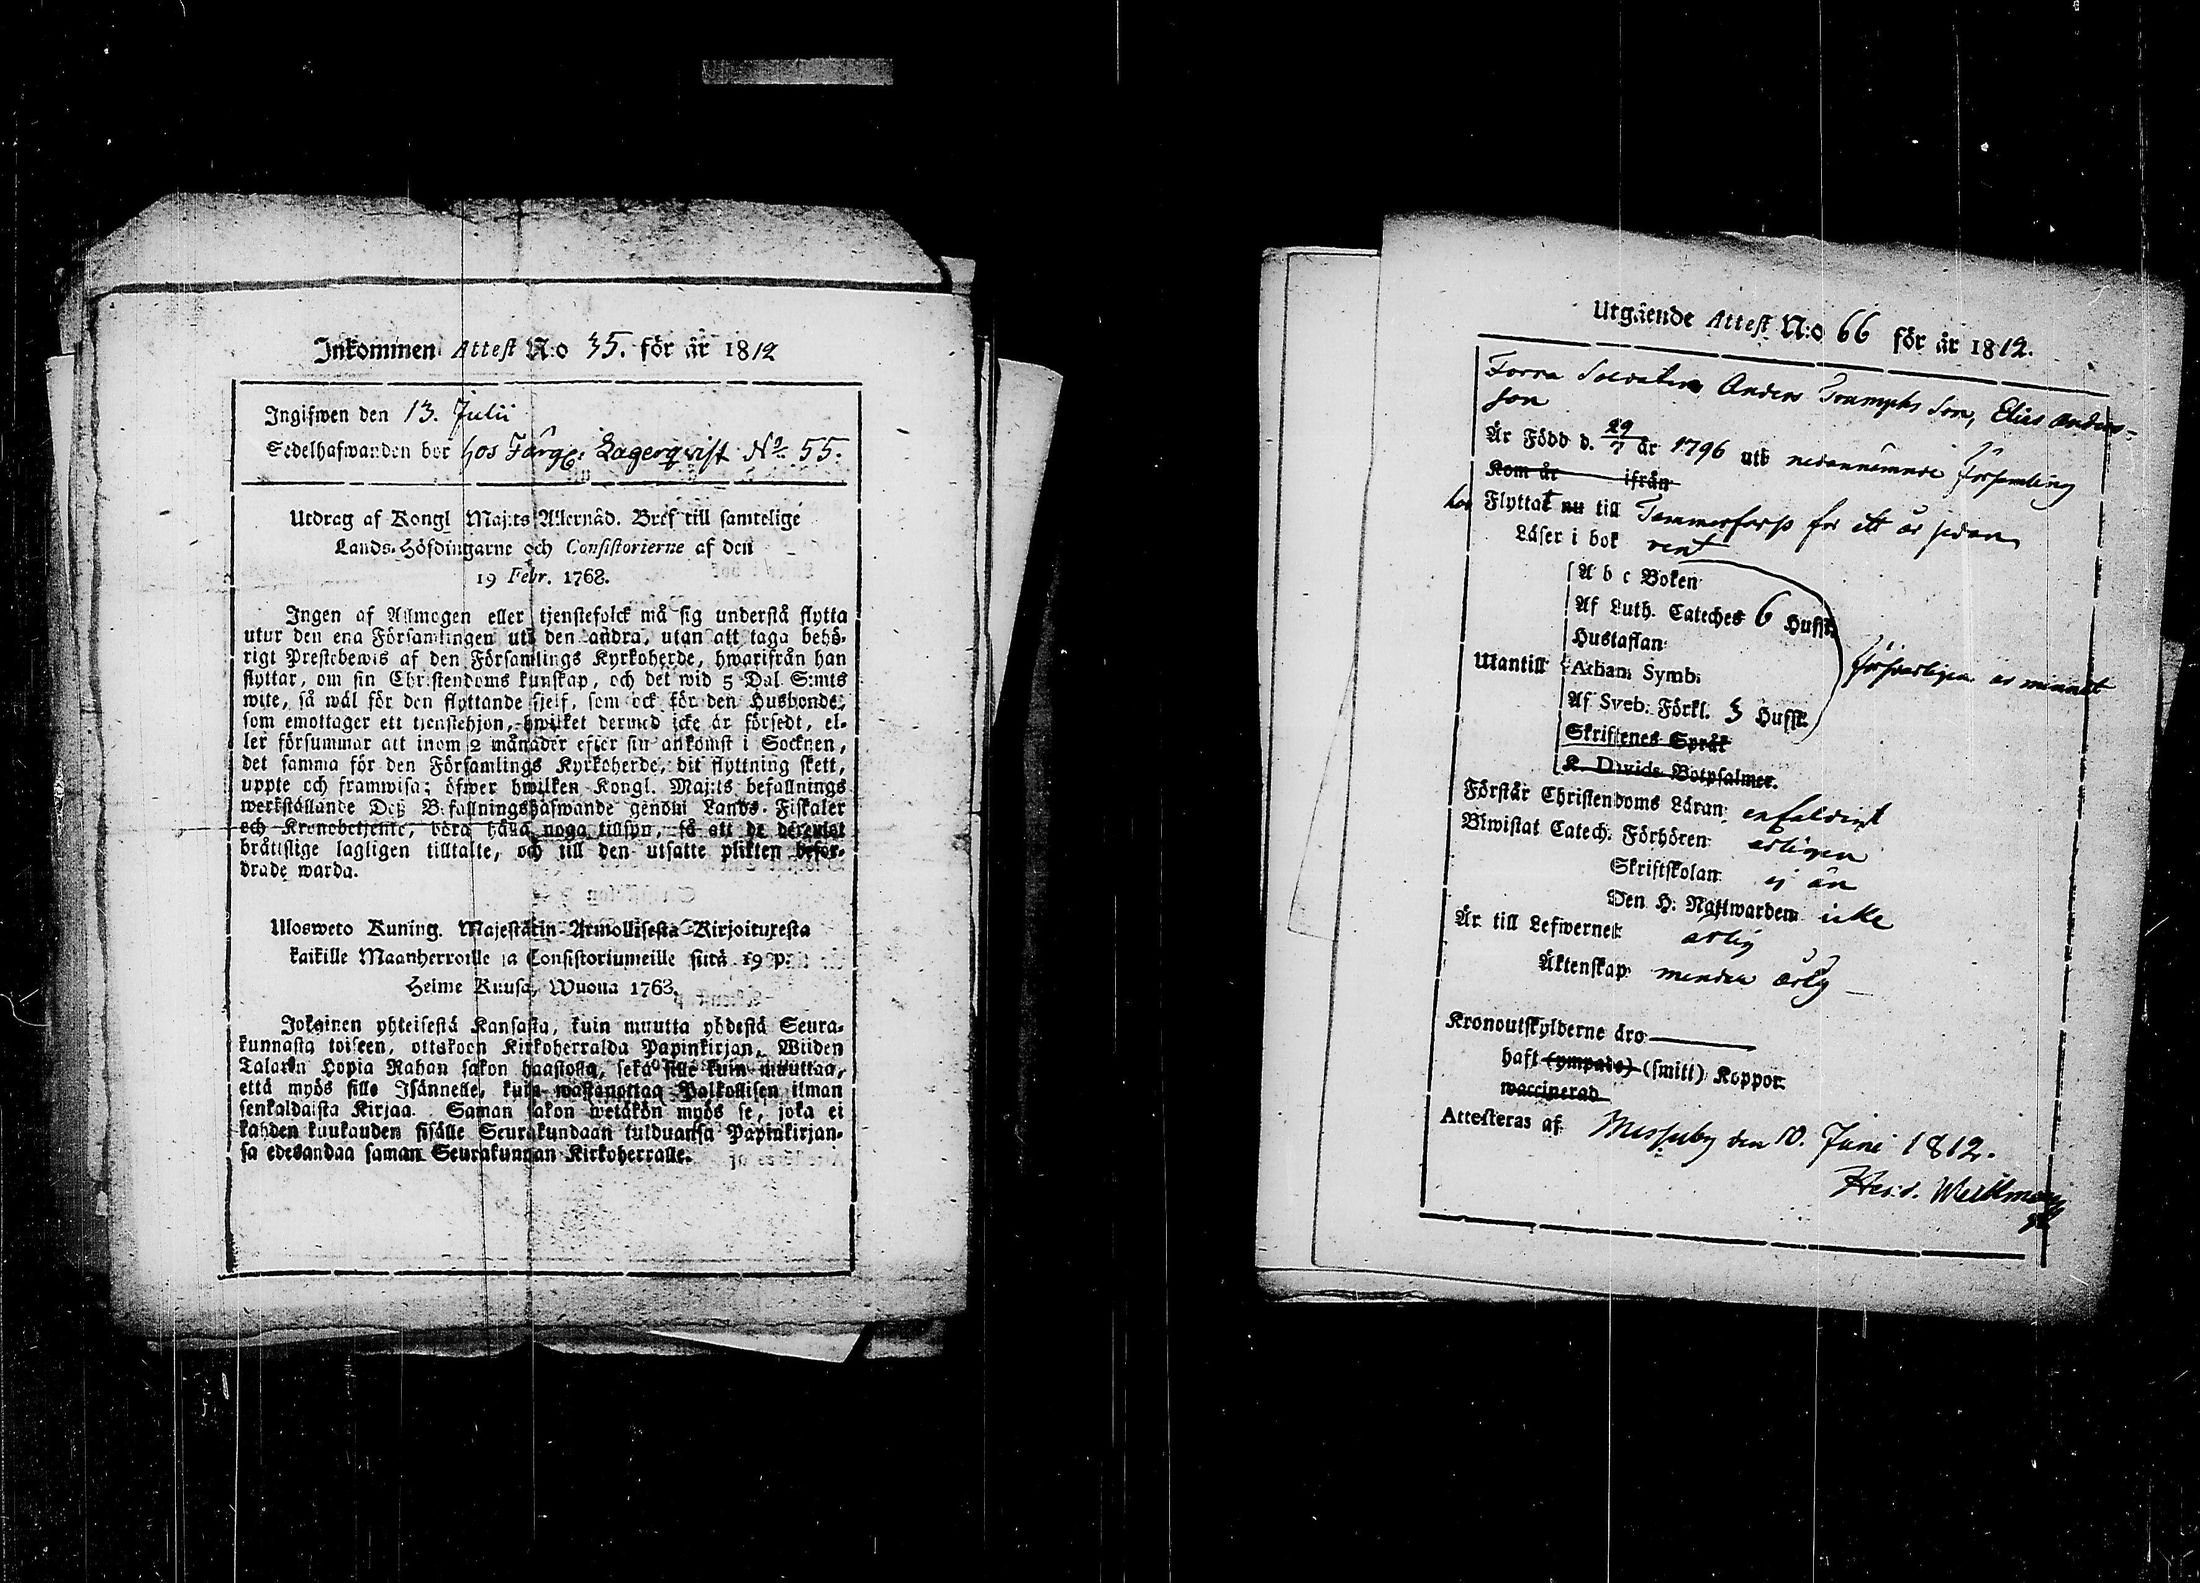 Inkommen Attest N:o 35. för år 1812
Ingifwen den 13. Julii
Sedelhafwanden bor hos Färg: Lagerqvist No 55.
Utdrag af Kongl Maj:ts Allernåd. Bref till samtelige
Lands-Höfdingarne och Consistorierne af den
19 Febr. 1768.
Ingen af Allmogen eller tjenstefolck må sig understå flytta
utur den ena Församlingen uti den andra, utan att taga behö-
rigt Prestebewis af den Församlings Kyrkoherde, hwarifrån han
flyttar, om sin Christendoms kunskap, och det wid 5 Dal S:mts
wite, så wäl för den flyttande sjelf, som ock för den Husbonde,
som emottager ett tjenstehjon, hwilket dermed icke är försedt, el-
ler försummar att inom 2 månader efter sin ankomst i Socknen,
det samma för den Församlings Kyrkoherde, dit flyttning skett,
uppte och framwisa; öfwer hwilken Kongl. Maj:ts befallnings
werkställande Deß Befallningshafwande genom Lands-Fiskaler
och Kronobetjente, böra hålla noga tillsyn, så att de deremot
bråttslige lagligen tilltalte, och till den utsatte plikten befor-
drade warda.
Ulosweto Kuning. Majestätin Armollisesta Kirjoituxesta
kaikille Maanherroille ja Consistoriumeille siitä 19 p.
Helme Kuusa, Wuonna 1768.
Jokainen yhteisestä Kansasta, kuin muutta yhdestä Seura-
kunnasta toiseen, ottakoon Kirkoherralda Papinkirjan, Wiiden
Talarin Hopia Rahan sakon haastolla, sekä sille kuin muuttaa,
että myös sille Isännelle, kuin wastanottaa Palkollisen ilman
senkaldaista Kirjaa. Saman sakon wetäkön myös se, joka ei
kahden kuukauden sisälle Seurakundaan tulduansa Papinkirjan-
sa edesandaa saman Seurakunnan Kirkoherralle.
Utgående Attest N:o 66 för år 1812.
Forra Soldaten Anders Triumphs Son, Elias Anders-
son
Är Född d. 29/7 år 1796 uti nedannämnde församling
Kom år ifrån
har Flyttat nu till Tammerfors för ett år sedan
Läser i bok rent
A b c Boken
Af Luth. Cateches 6 Hufst.
Hustaflan
Utantill Athan. Symb.
Af Sveb. Förkl. 3 Hufst.
Skriftenes Språk
K. Davids Botpsalmer.
Förstår Christendoms Läran enfaldigt
Biwistat Catech. Förhören årligen
Skriftskolan ej än
Den H. Nattwarden icke
Är till Lefwernet ärlig
Äktenskap
Kronoutskylderne äro
haft (ympade) (smitt) Koppor.
waccinerad
Attesteras af Messuby den 10. Juni 1812.